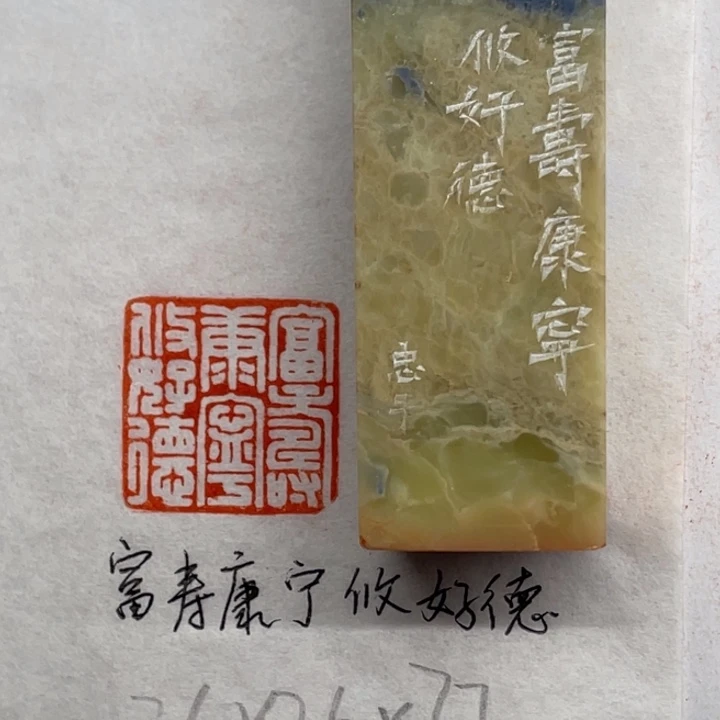 富壽康寧
攸好德
忠
富壽
康寧
攸好德
富寿康宁攸好德